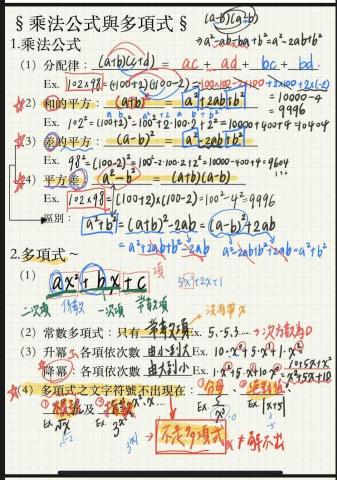 § 乘法公式與多項式 §
(a-b)(a-b)
⇒ a²-ab-ba+b² = a²-2ab+b²
1.乘法公式
(1) 分配律: (a+b)(c+d) = ac + ad + bc + bd.
Ex. 102×98 = (100+2)(100-2) = 100×100-2×100+2×100+2×(-2)
= 10000-4
= 9996
(2) 和的平方: (a+b)² = a²+2ab+b²
Ex. 102² = (100+2)² = 100²+2·100·2+2² = 10000+400+4 = 10404
(3) 差的平方: (a-b)² = a²-2ab+b²
Ex. 98² = (100-2)² = 100²-2·100·2+2² = 10000-400+4 = 9604
(4) 平方差: a²-b² = (a+b)(a-b)
Ex. 102×98 = (100+2)×(100-2) = 100²-4 = 9996
區別: a²+b² = (a+b)²-2ab = (a-b)²+2ab
= a²+2ab+b²-2ab = a²-2ab+b²+2ab = a²+b²
2.多項式~
(1) ax²+bx+c 項 5x²+2x+1
二次項 係數 一次項 常數項
沒有帶x
(2) 常數多項式: 只有 常數項 Ex. 5.-5.3... 次方數為0
(3) 升冪: 各項依次數 由小到大 Ex. 10·x⁰+5·x¹+1·x²
降冪: 各項依次數 由大到小 Ex. 1·x²+5x+10·x⁰
10+5x+x²
= x²+5x+10
(4) 多項式之文字符號不出現在: 分母、絕對值、
Ex. Ex. |x+5|
根號及 指數 x·x...
Ex. √x Ex. 3ˣ
→ 不是多項式